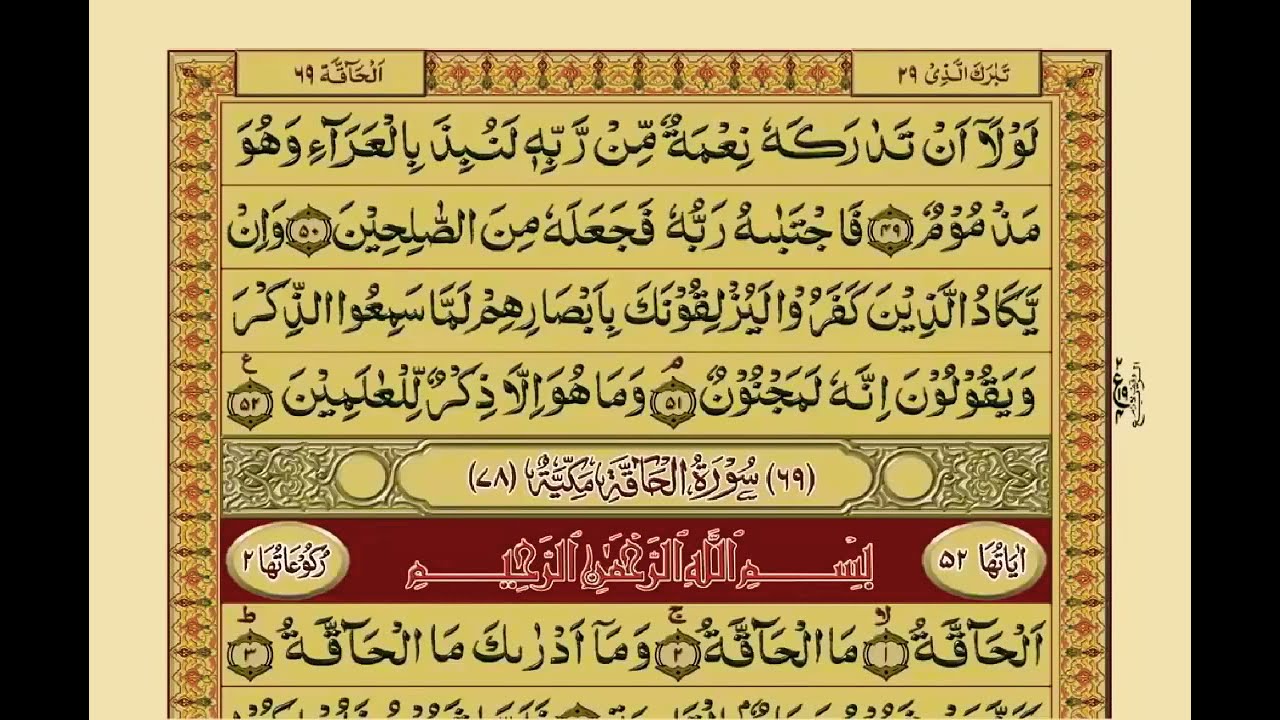 تَبٰرَكَ الَّذِىْ ۲۹
اَلْحَآقَّة ۶۹
لَوْلَاۤ اَنْ تَدٰرَكَهٗ نِعْمَةٌ مِّنْ رَّبِّهٖ لَنُبِذَ بِالْعَرَآءِ وَهُوَ
مَذْمُوْمٌ ۴۹ فَاجْتَبٰىهُ رَبُّهٗ فَجَعَلَهٗ مِنَ الصّٰلِحِيْنَ ۵۰ وَاِنْ
يَّكَادُ الَّذِيْنَ كَفَرُوْا لَيُزْلِقُوْنَكَ بِاَبْصَارِهِمْ لَمَّا سَمِعُوا الذِّكْرَ
وَيَقُوْلُوْنَ اِنَّهٗ لَمَجْنُوْنٌ ۘ ۵۱ وَمَا هُوَ اِلَّا ذِكْرٌ لِّلْعٰلَمِيْنَ ۵۲ ع
(۶۹) سُوْرَةُ الْحَآقَّةِ مَكِّيَّةٌ (۷۸)
اٰيَاتُهَا ۵۲ بِسْمِ اللّٰهِ الرَّحْمٰنِ الرَّحِيْمِ رُكُوْعَاتُهَا ۲
اَلْحَآقَّةُ ۙ ۱ مَا الْحَآقَّةُ ۚ ۲ وَمَاۤ اَدْرٰىكَ مَا الْحَآقَّةُ ؕ ۳